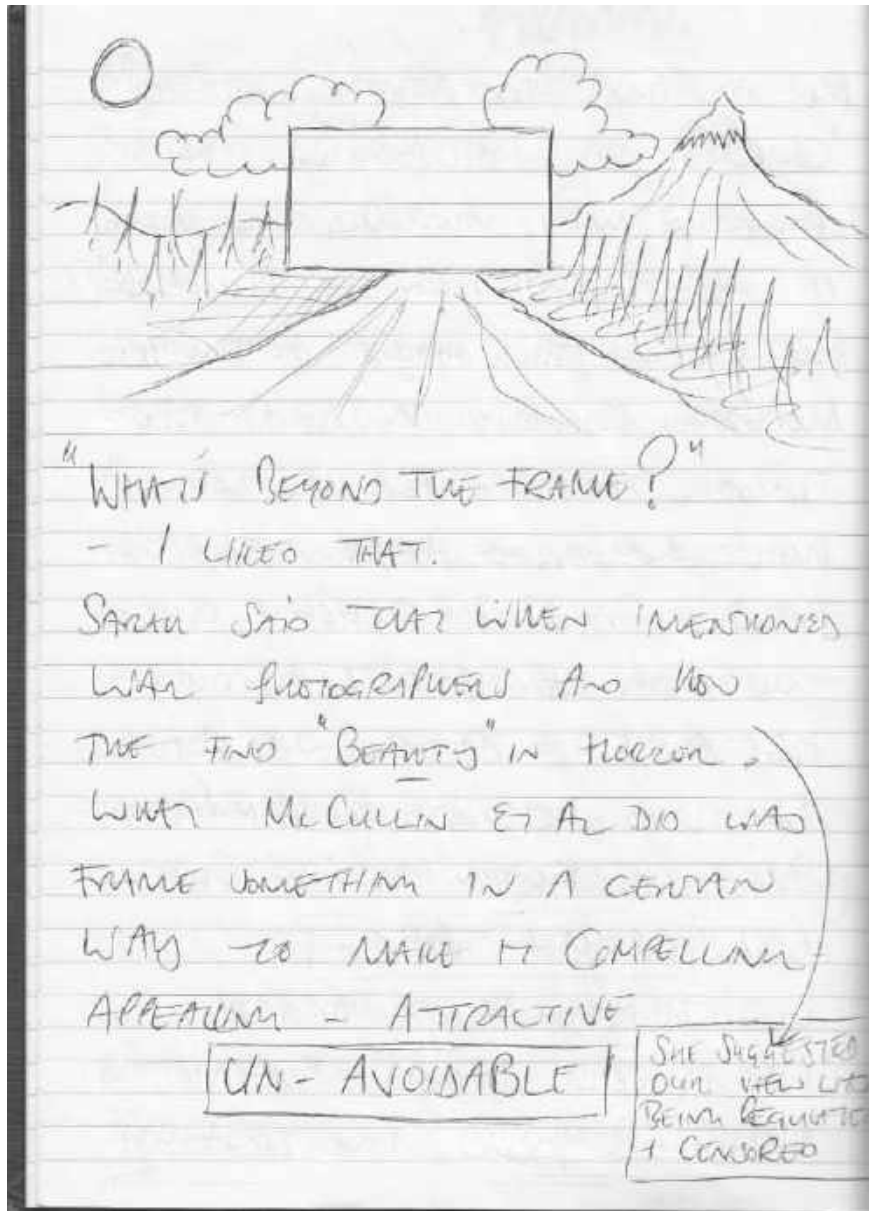 "WHAT'S BEYOND THE FRAME?"
- I LIKED THAT.
SARAH SAID THAT WHEN I MENTIONED
WAR PHOTOGRAPHERS AND HOW
THE FIND "BEAUTY" IN HORROR.
WHAT McCULLIN ET AL DID WAS
FRAME SOMETHING IN A CERTAIN
WAY TO MAKE IT COMPELLING -
APPEALING - ATTRACTIVE
UN-AVOIDABLE
SHE SUGGESTED
OUR VIEW WAS
BEING REGULATED
+ CENSORED